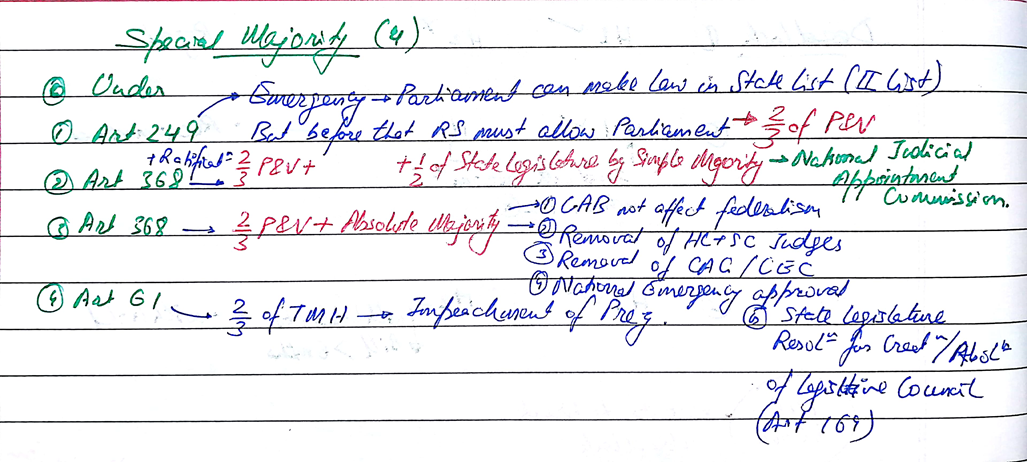 Special Majority (4)
⓪ Under
→ Emergency → Parliament can make law in State List (II List)
① Art 249 But before that RS must allow Parliament → 2/3 of P&V
② Art 368 + Ratificatⁿ → 2/3 P&V + + 1/2 of State legislature by Simple Majority → National Judicial
Appointment
Commission.
③ Art 368 → 2/3 P&V + Absolute Majority → ① CAB not affect federalism
→ ② Removal of HC+SC Judges
③ Removal of CAG / CEC
④ National Emergency approval
④ Art 61 → 2/3 of TMH → Impeachment of Prez.
⑤ State legislature
Resolⁿ for Creatⁿ/Abolⁿ
of legislative Council
(Art 169)